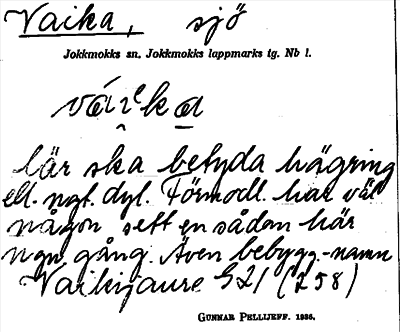 Vaika, sjö
Jokkmokks sn. Jokkmokks lappmarks tg. Nb l.
lär ska betyda hägring
ell. ngt. dyl. Förmodl. har väl
någon sett en sådan här
ngn gång. Även bebygg.-namn
Vaikijaure G21 (258)
GUNNAR PELLIJEFF. 1936.